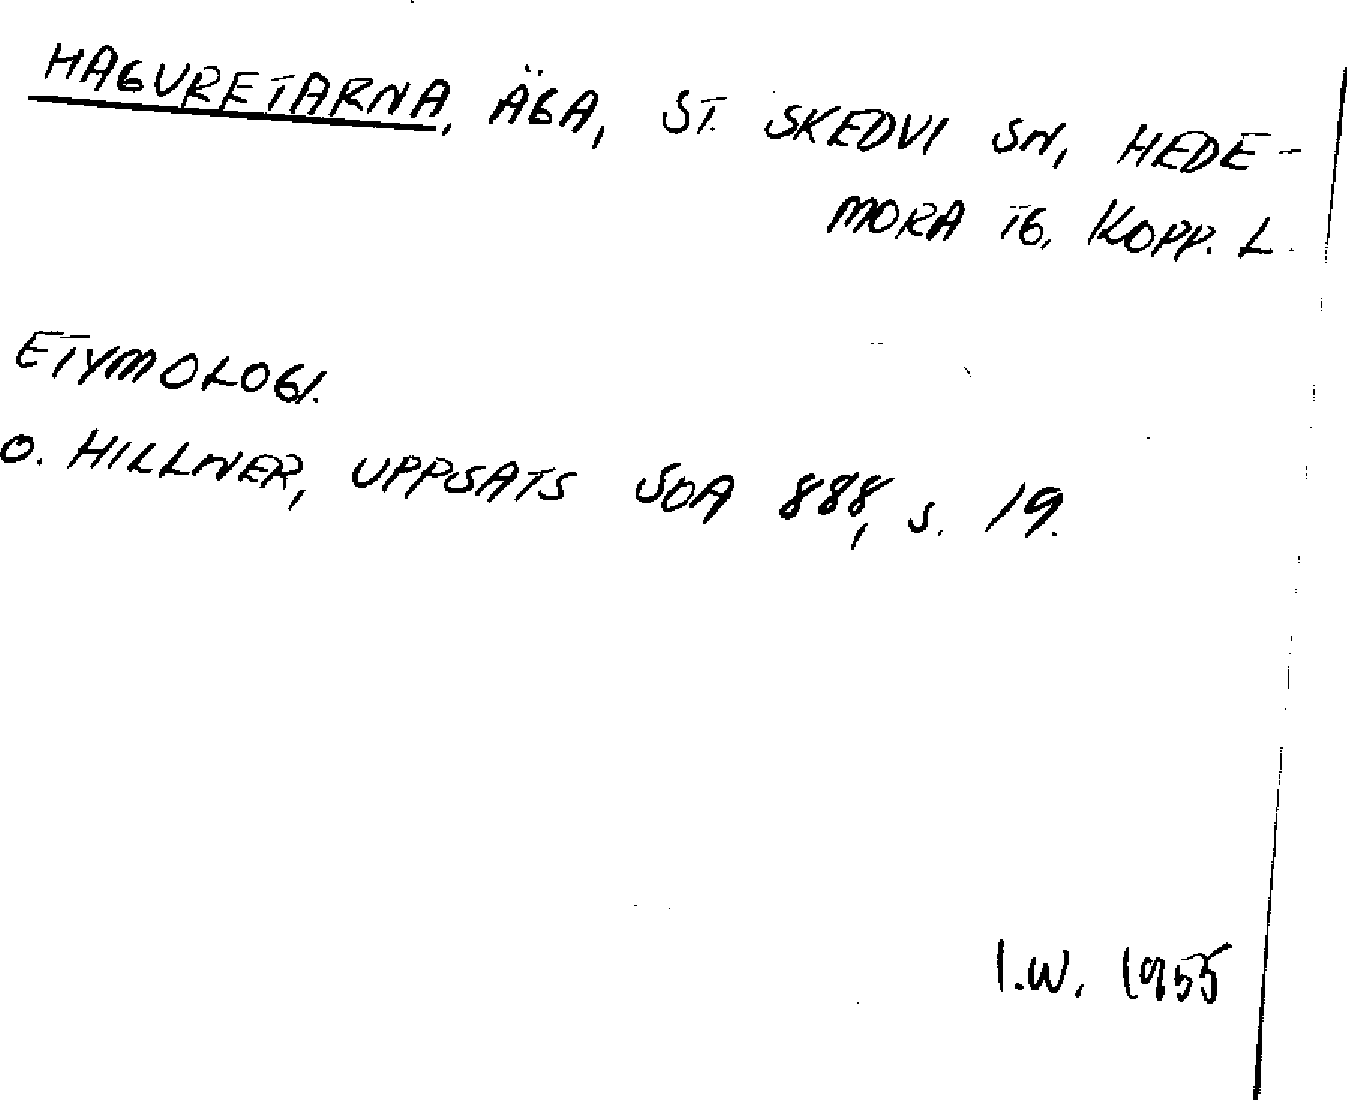 HAGVRETARNA, ÄGA, ST. SKEDVI SN, HEDE-
MORA TG, KOPP. L.
ETYMOLOGI.
O. HILLNER, UPPSATS SOA 888, s. 19.
I.W. 1955